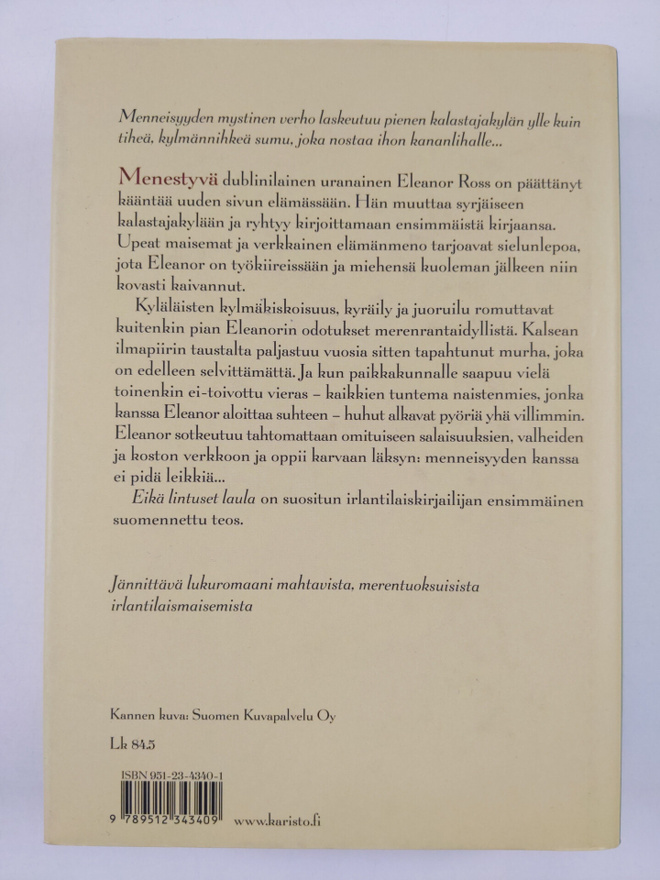 Menneisyyden mystinen verho laskeutuu pienen kalastajakylän ylle kuin
tiheä, kylmännihkeä sumu, joka nostaa ihon kananlihalle...
Menestyvä dublinilainen uranainen Eleanor Ross on päättänyt
kääntää uuden sivun elämässään. Hän muuttaa syrjäiseen
kalastajakylään ja ryhtyy kirjoittamaan ensimmäistä kirjaansa.
Upeat maisemat ja verkkainen elämänmeno tarjoavat sielunlepoa,
jota Eleanor on työkiireissään ja miehensä kuoleman jälkeen niin
kovasti kaivannut.
Kyläläisten kylmäkiskoisuus, kyräily ja juoruilu romuttavat
kuitenkin pian Eleanorin odotukset merenrantaidyllistä. Kalsean
ilmapiirin taustalta paljastuu vuosia sitten tapahtunut murha, joka
on edelleen selvittämättä. Ja kun paikkakunnalle saapuu vielä
toinenkin ei-toivottu vieras – kaikkien tuntema naistenmies, jonka
kanssa Eleanor aloittaa suhteen – huhut alkavat pyöriä yhä villimmin.
Eleanor sotkeutuu tahtomattaan omituiseen salaisuuksien, valheiden
ja koston verkkoon ja oppii karvaan läksyn: menneisyyden kanssa
ei pidä leikkiä...
Eikä lintuset laula on suositun irlantilaiskirjailijan ensimmäinen
suomennettu teos.
Jännittävä lukuromaani mahtavista, merentuoksuisista
irlantilaismaisemista
Kannen kuva: Suomen Kuvapalvelu Oy
Lk 84.5
ISBN 951-23-4340-1
9 789512 343409
www.karisto.fi